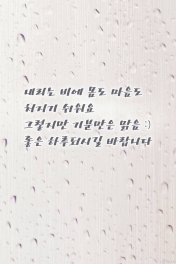 내리는 비에 몸도 마음도
처지기 쉬워요
그렇지만 기분만은 맑음 :)
좋은 하루되시길 바랍니다